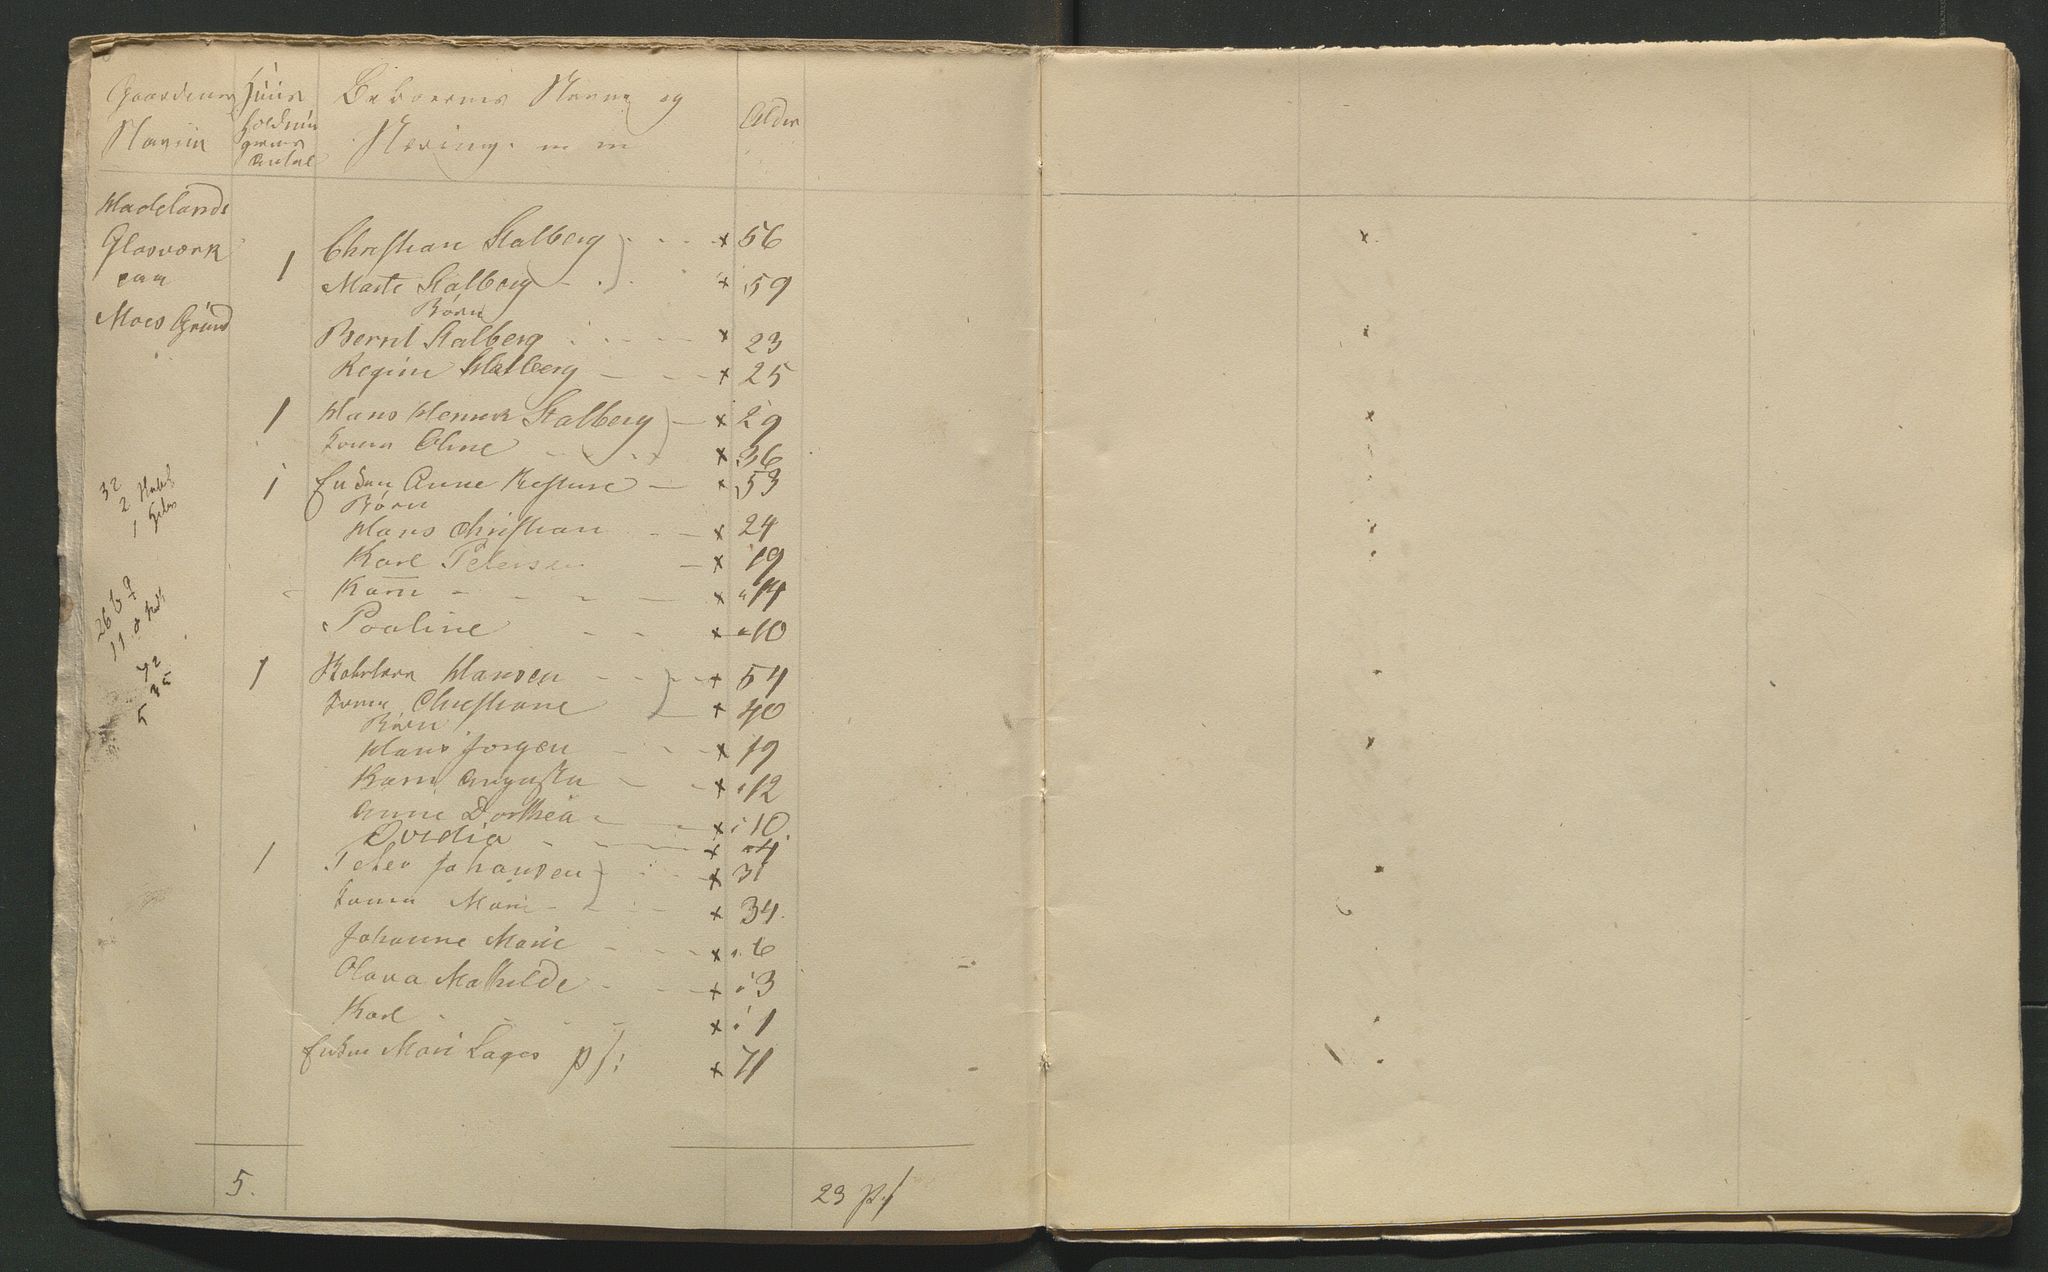 Gaardenes Huus Beboernes Navne og Alder
Navne holdnin gernes Antal Næring. m m
Hadelands
Glasværk
paa
Moes Grund
1 Christian Stalberg x 56
Marte Stalberg x 59
Børn
Bernt Stalberg x 23
Regine Stalberg x 25
1 Hans Henrik Stalberg x 29
Konen Oline x 36
1 Enken Anne x 53
Børn
Hans Christian x 24
Karl Petersen x 19
Karn x 14
Pauline x 10
1 Hansen x 54
Konen Christiane x 40
Børn
Hans Jorgen x 19
Karn Augusta x 12
Anne Dorthea x 10
Ovidia x 4
1 Peter Johansen x 31
Konen Marie x 34
Johanne Marie x 6
Olava Mathilde x 3
Karl x 1
Enken Mari Lages x 71
32
2
1
26 6 7
11
5
5. 23